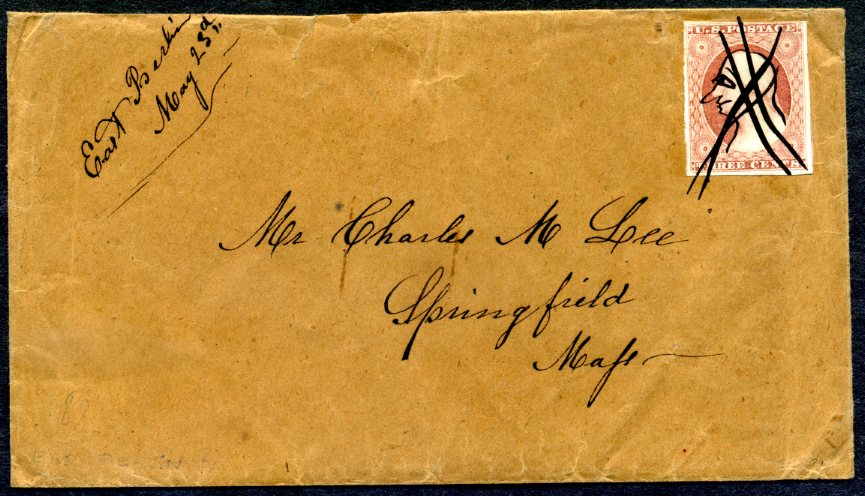 East Berlin
May 23d,
U.S. POSTAGE
THREE CENTS
Mr Charles M Lee
Springfield
Maſs